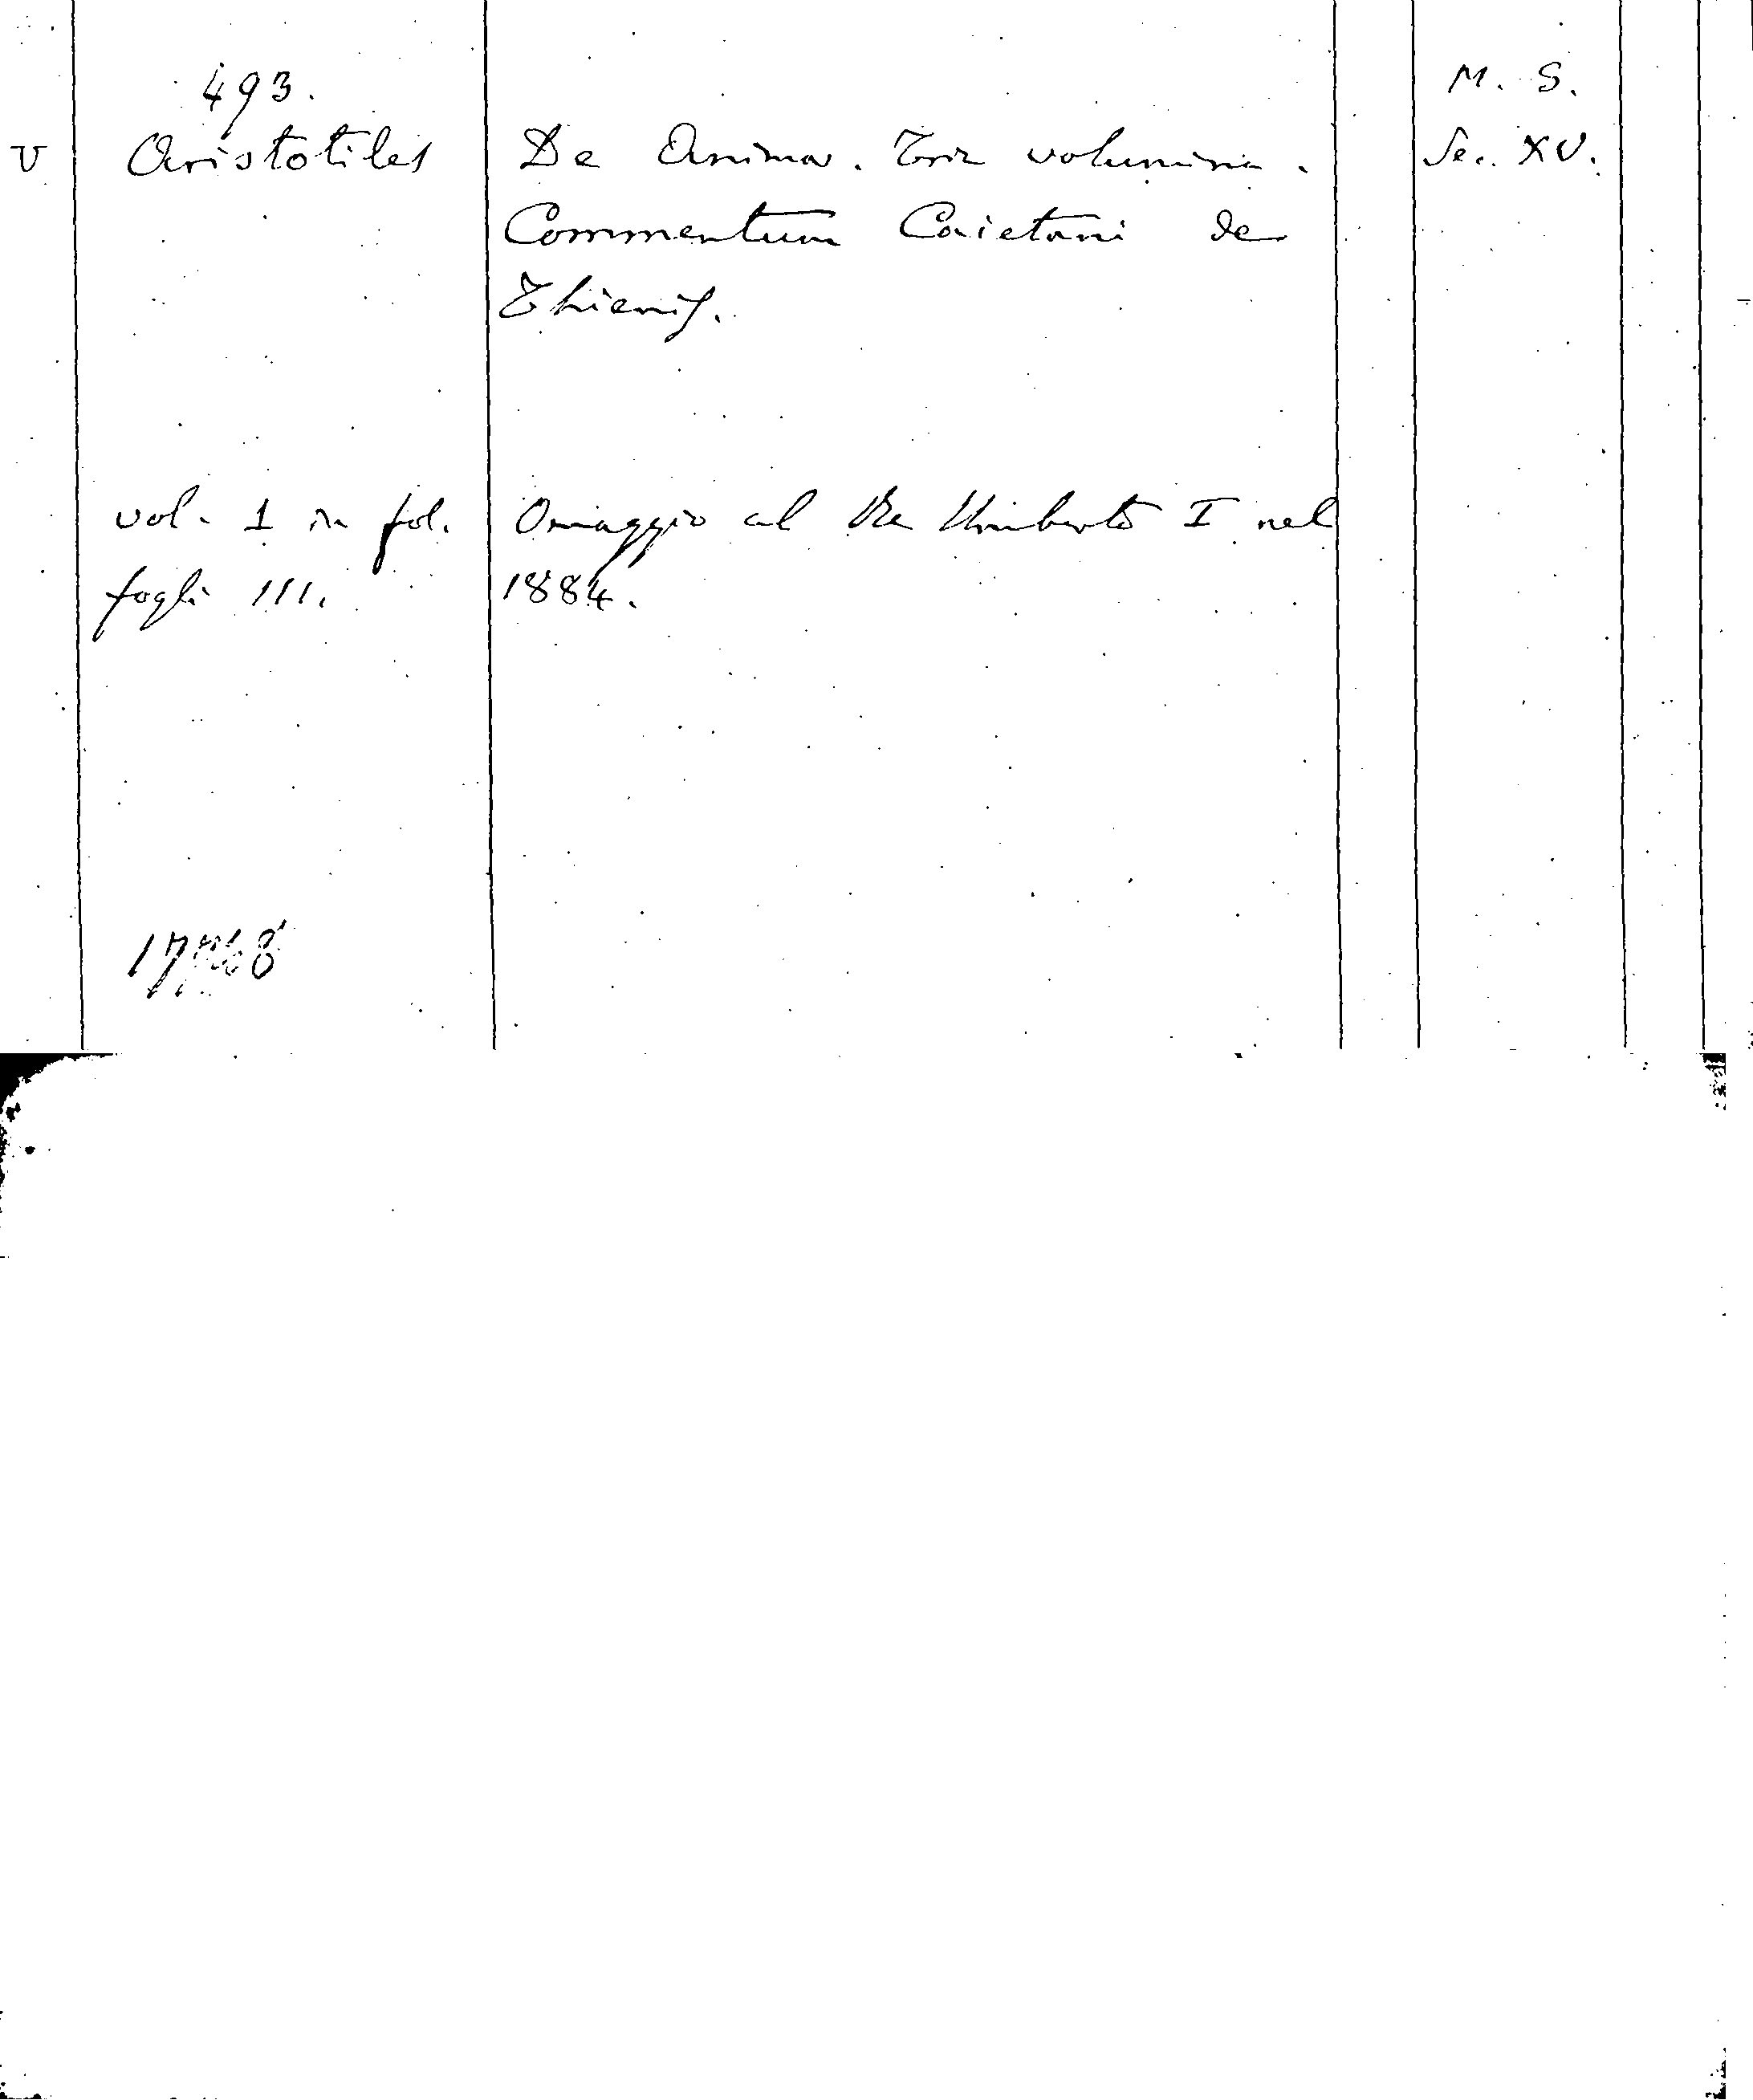 493.
M. S.
V Aristotiles De Anima. Tria volumina. Sec. XV.
Commentum Caietani de
Thienis.
vol. 1 in fol. Omaggio al Re Umberto I nel
fogli 111. 1884.